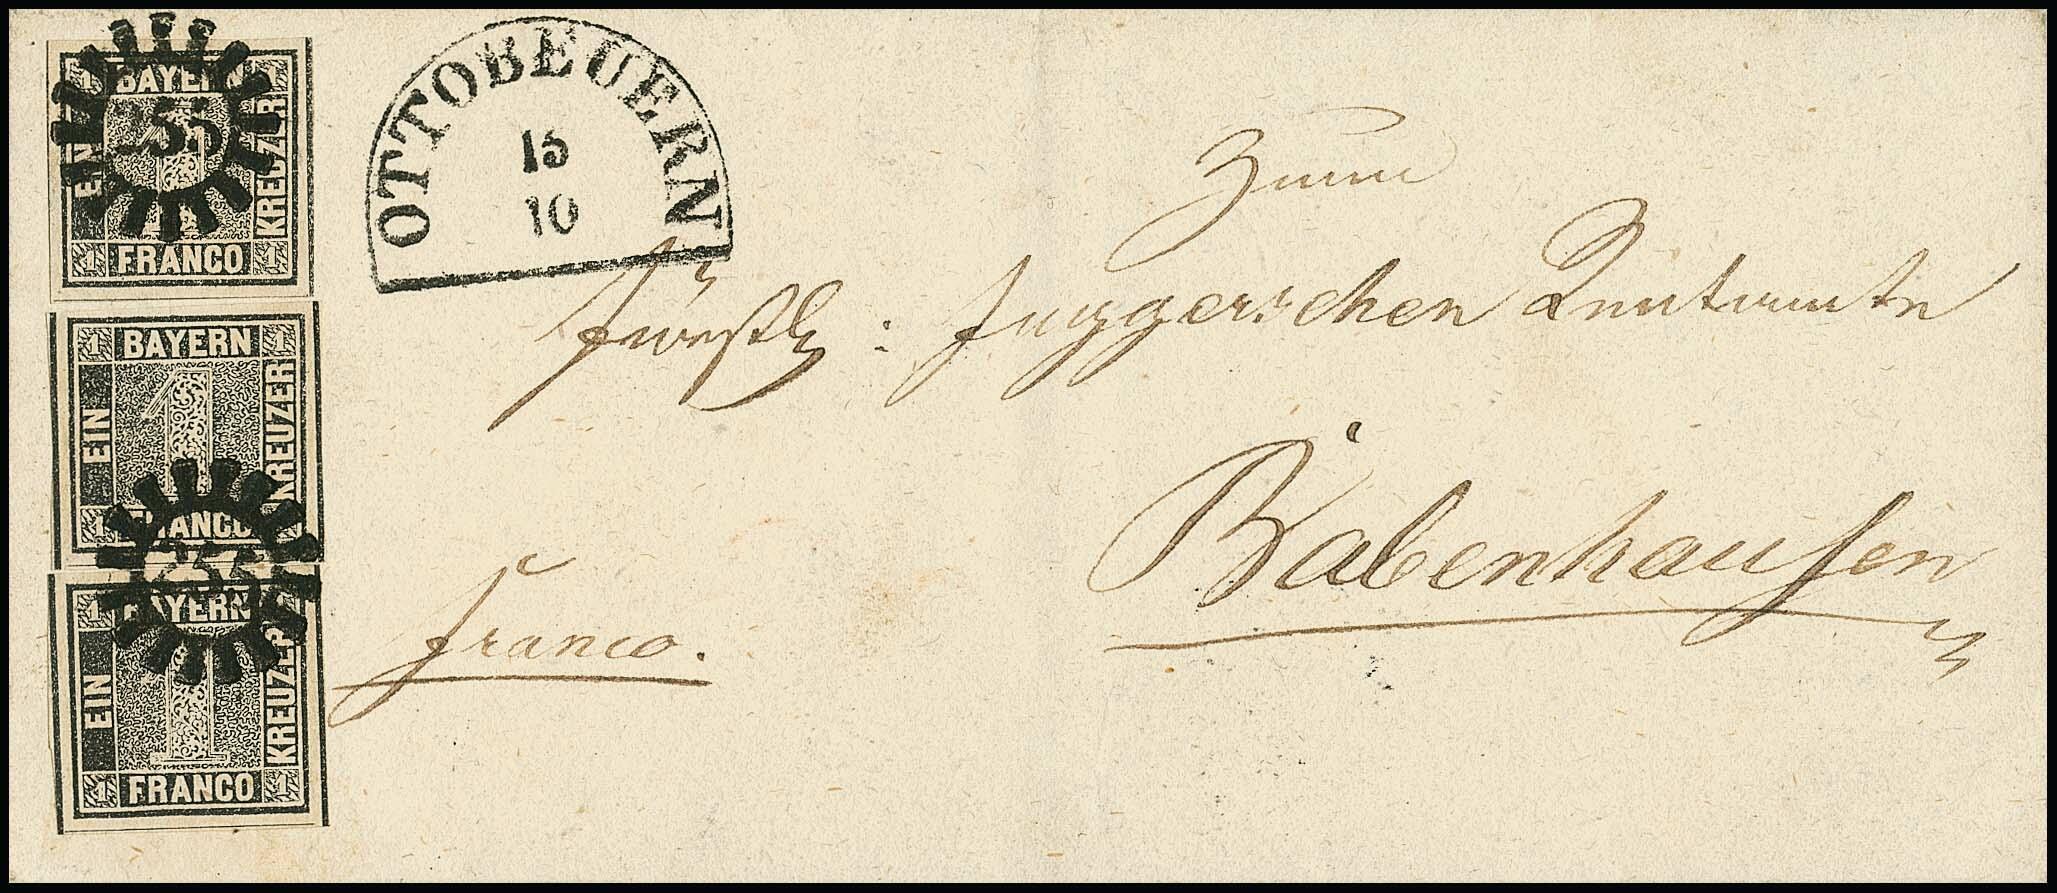 1 BAYERN 1
EIN
KREUZER
1 FRANCO 1
255
1 BAYERN 1
EIN
KREUZER
1 FRANCO 1
255
1 BAYERN 1
EIN
KREUZER
1 FRANCO 1
OTTOBEUERN
15
10
Zum
Fürstl: Fuggerschen Rentamte
Babenhausen
franco.